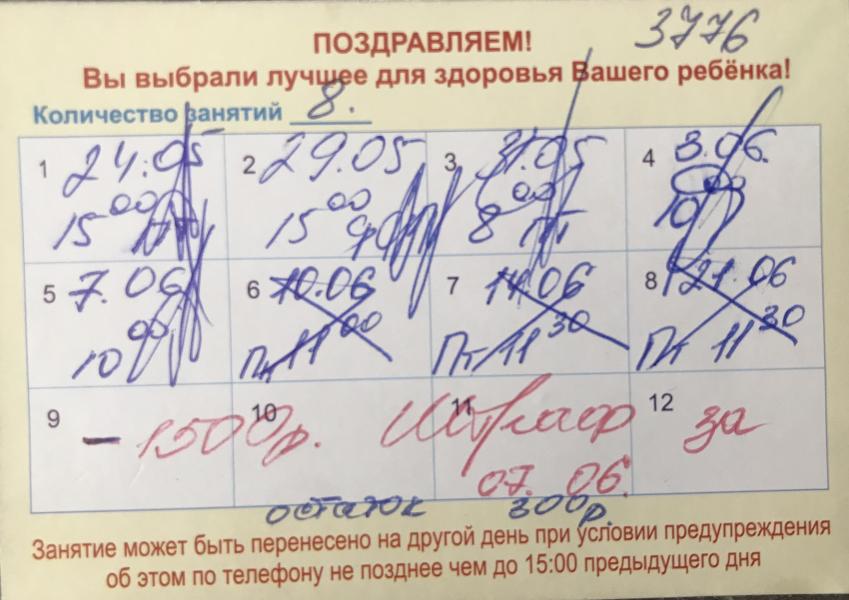 3776
ПОЗДРАВЛЯЕМ!
Вы выбрали лучшее для здоровья Вашего ребёнка!
Количество занятий 8.
1 24.05 2 29.05 3 31.05 4 3.06.
15 00 15 00 8 00 пт 10
5 7.06 6 10.06 7 14.06 8 21.06
10 00 Пт 11 00 Пт 11 30 Пт 11 30
9 10 11 12
– 1500р. Штраф за
07. 06.
остаток 300р.
Занятие может быть перенесено на другой день при условии предупреждения
об этом по телефону не позднее чем до 15:00 предыдущего дня